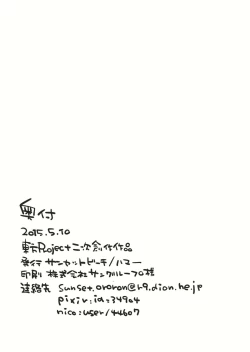 奥付
2015.5.10
東方Project二次創作作品
発行 サンセットビーチ/ハマー
印刷 株式会社サングループ様
連絡先 sunset.ororon@r9.dion.ne.jp
pixiv:id:34904
nico:user/44607